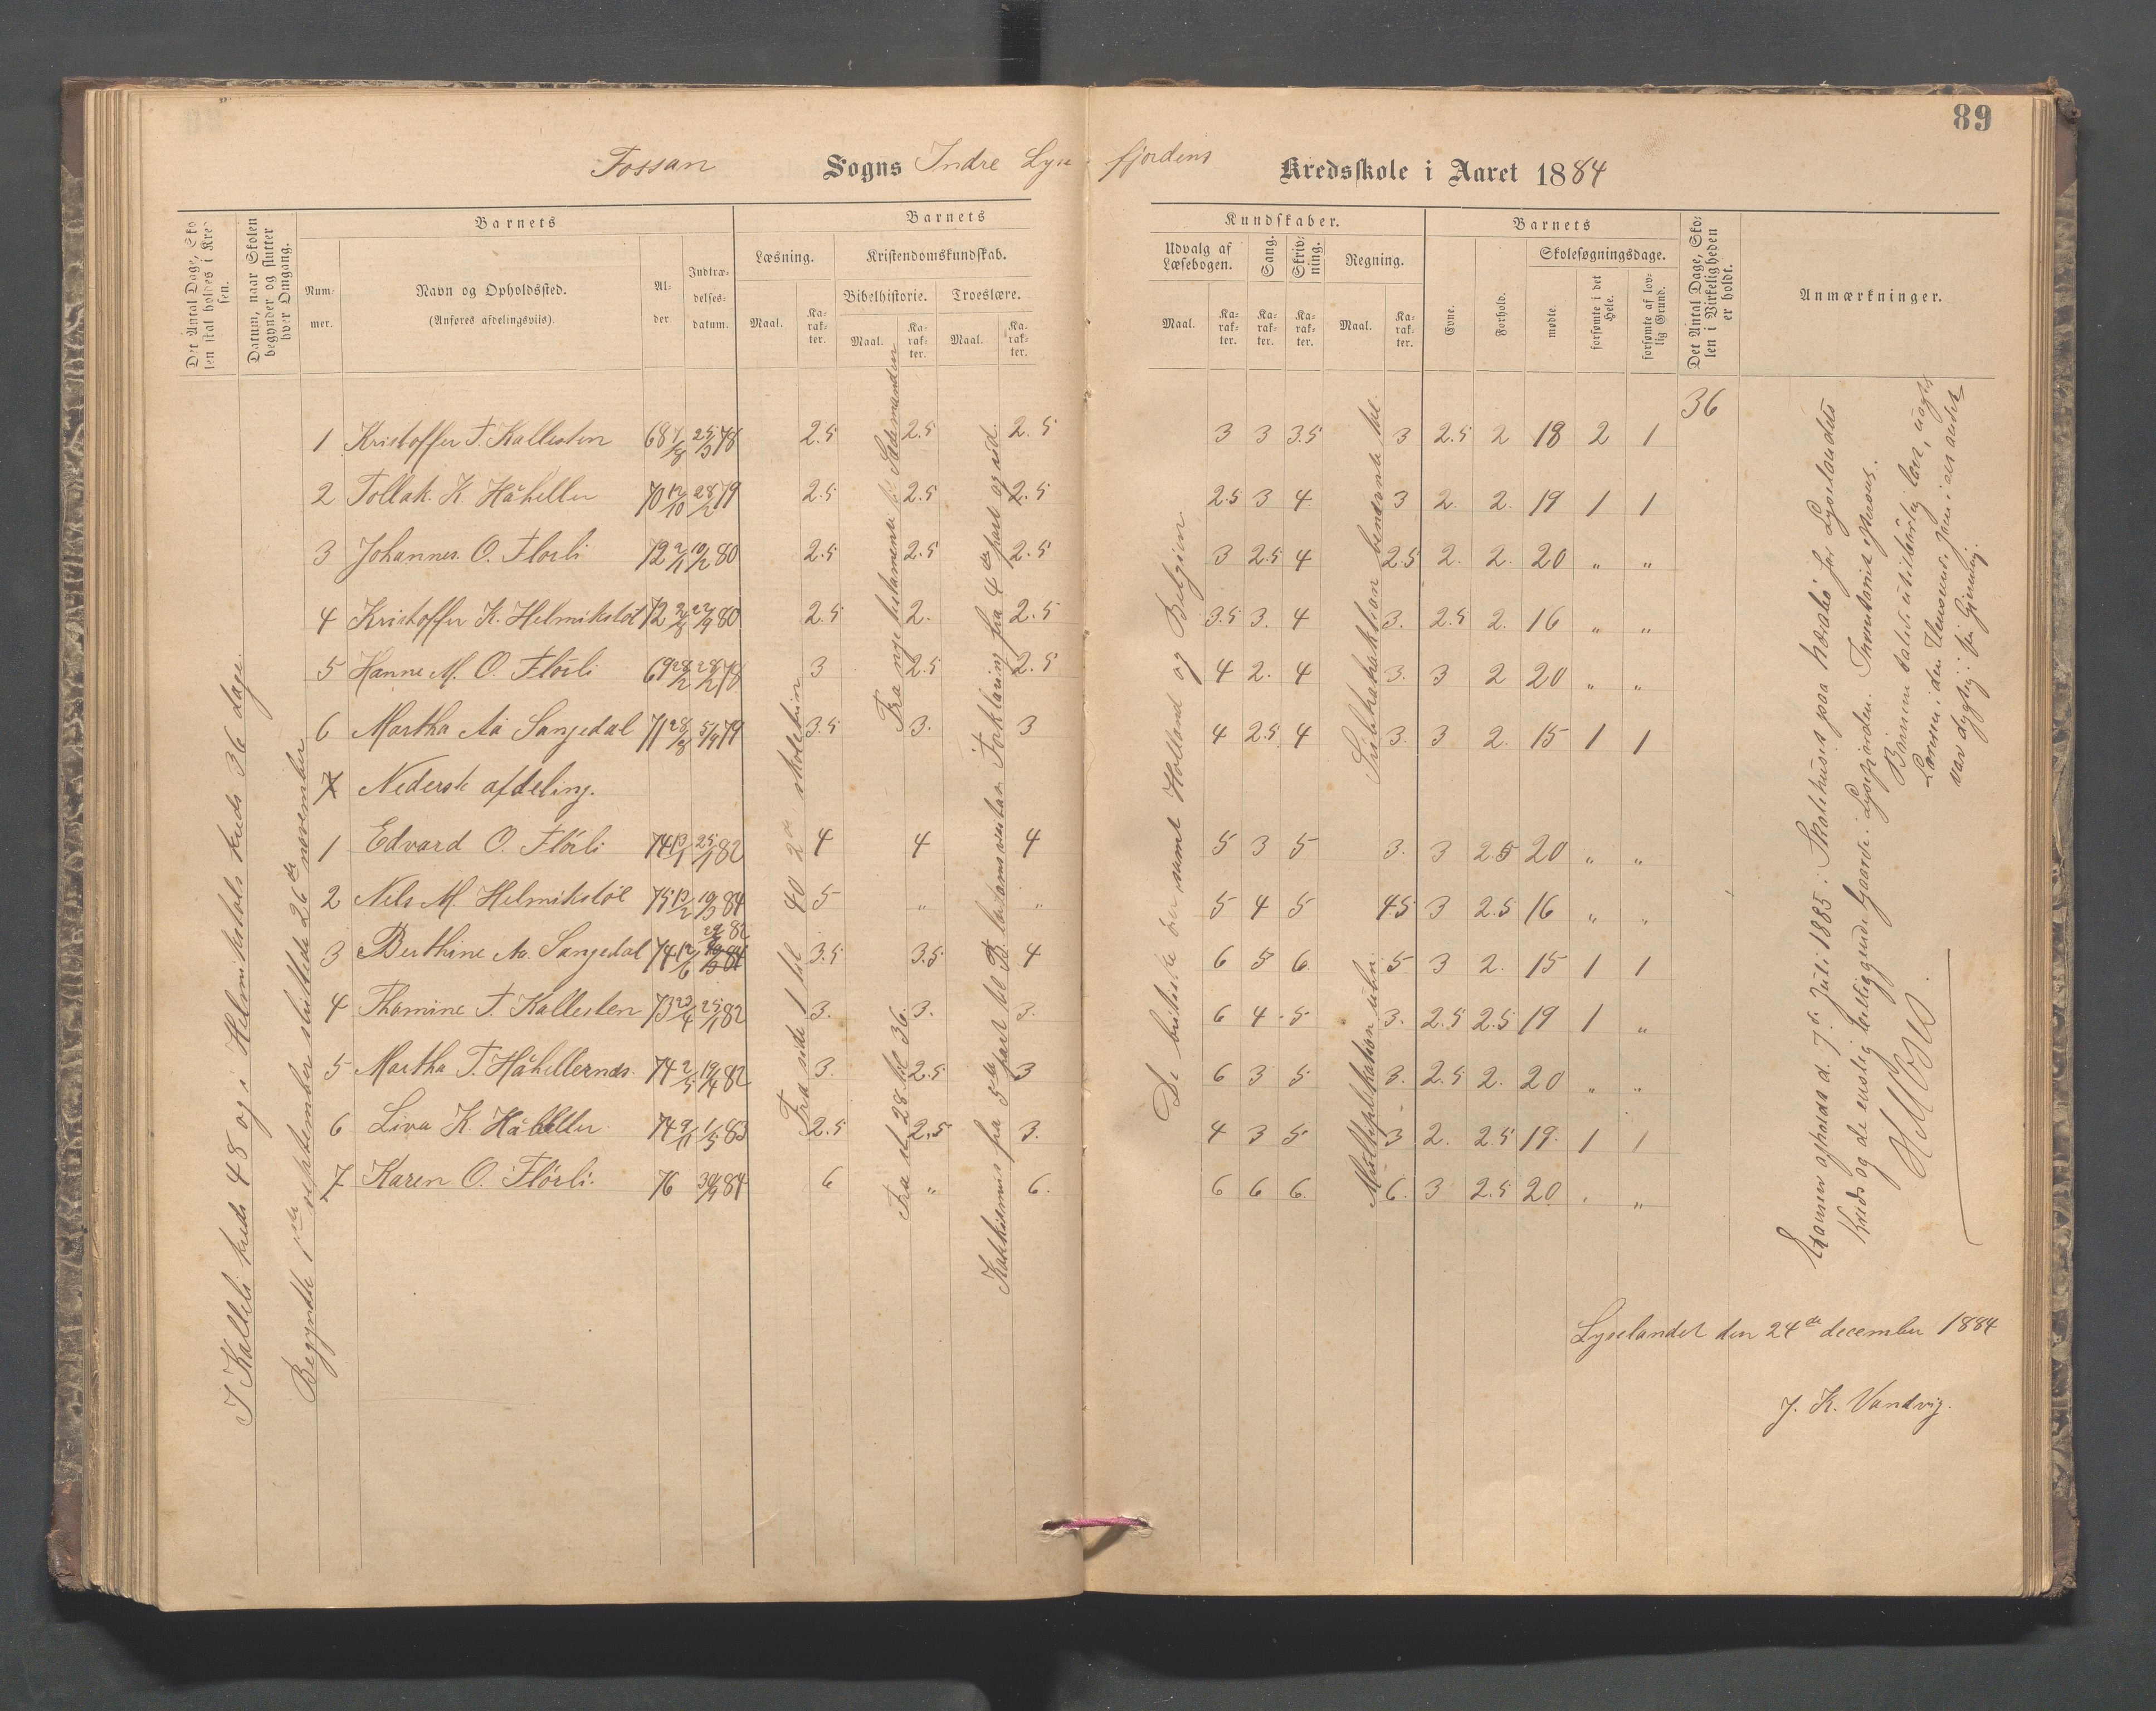 89
Fossan Sogns Indre Lyse fjordens Kredsskole i Aaret 1884
Det Antal Dage, Skolen skal holdes i Kredsen.
Datum, naar Skolen begynder og slutter hver Omgang.
Barnets
Nummer.
Navn og Opholdssted.
(Anføres afdelingsviis).
Alder.
Indtrædelsesdatum.
Barnets Kundskaber.
Læsning.
Maal. Karakter.
Kristendomskundskab.
Bibelhistorie. Troeslære.
Maal. Karakter. Maal. Karakter.
Udvalg af Læsebogen.
Maal. Karakter.
Sang.
Karakter.
Skrivning.
Karakter.
Regning.
Maal. Karakter.
Barnets
Evne. Forhold.
Skolesøgningsdage.
mødte. forsømte i det Hele. forsømte af lovlig Grund.
Det Antal Dage, Skolen i Virkeligheden er holdt.
Anmærkninger.
36
1 Kristoffer T. Kallesten 68 1/8 25/3 78 2.5 2.5 2.5 3 3 3.5 3 2.5 2 18 2 1
2 Tollak. K. Håheller 70 12/10 28/2 79 2.5 2.5 2.5 2.5 3 4 3 2. 2. 19 1 1
3 Johannes. O. Flørli 72 2/1 19/2 80 2.5 2.5 2.5 3 2.5 4 2.5 2. 2. 20 " "
4 Kristoffer K. Helmikstøl 72 2/8 22/9 80 2.5 2. 2.5 3.5 3. 4 3. 2.5 2. 16 " "
5 Hanne M. O. Flørli 69 28/2 28/2 78 3 2.5 2.5 4 2. 4 3. 3 2 20 " "
6 Martha Aa Sangedal 71 28/8 5/9 79 3.5 3. 3 4 2.5 4 3. 3 2. 15 1 1
7 Nederste afdeling.
1 Edvard O. Flørli 74 13/1 25/1 82 4 4 4 5 3 5 3. 3 2.5 20 " "
2 Nels M. Helmikstøl 75 13/2 19/3 84 5 " " 5 4 5 4.5 3 2.5 16 " "
3 Berthine Aa. Sangedal 74 12/6 82 3.5 3.5 4 6 5 6. 5 3 2. 15 1 1
4 Thomine T. Kallesten 73 23/4 25/1 82 3. 3. 3. 6 4 5 3. 2.5 2.5 19 1 "
5 Martha T. Håhellernds. 74 2/5 19/4 82 3. 2.5 3 6 3 5 3. 2.5 2. 20 " "
6 Liva K. Håheller 74 9/11 1/5 83 2.5 2.5 3. 4 3 5 3 2. 2.5 19. 1 1
7 Karen O. Flørli. 76 30/9 84 6 " 6. 6 6 6. 6. 3 2.5 20 " "
I Kalleli kreds 48 og i Helmikstøls kreds 36 dage.
Begyndte 1ste september sluttede 26de november
Fra side 1 til 40 2de skoletrin
Fra nye testamente til Stedmanden
Fra st. 28 til 36.
Forklaring fra 4de part og ud.
Katekismus fra 5te part til
De britiske øer samt Holland og Belgien
Subtraktion benævnte tal.
Multiplikation uben.
Examen afholdt d. 7de Juli 1885 i Skolehuset paa for Lyselandets
Kreds og de enslig beliggende Gaarde i Lysefjorden. Fremtomit efterous.
Børnene
Læreren i den
var dygtig i sin Gjerning.
Lyselandet den 24de december 1884
J. K. Vandvig.